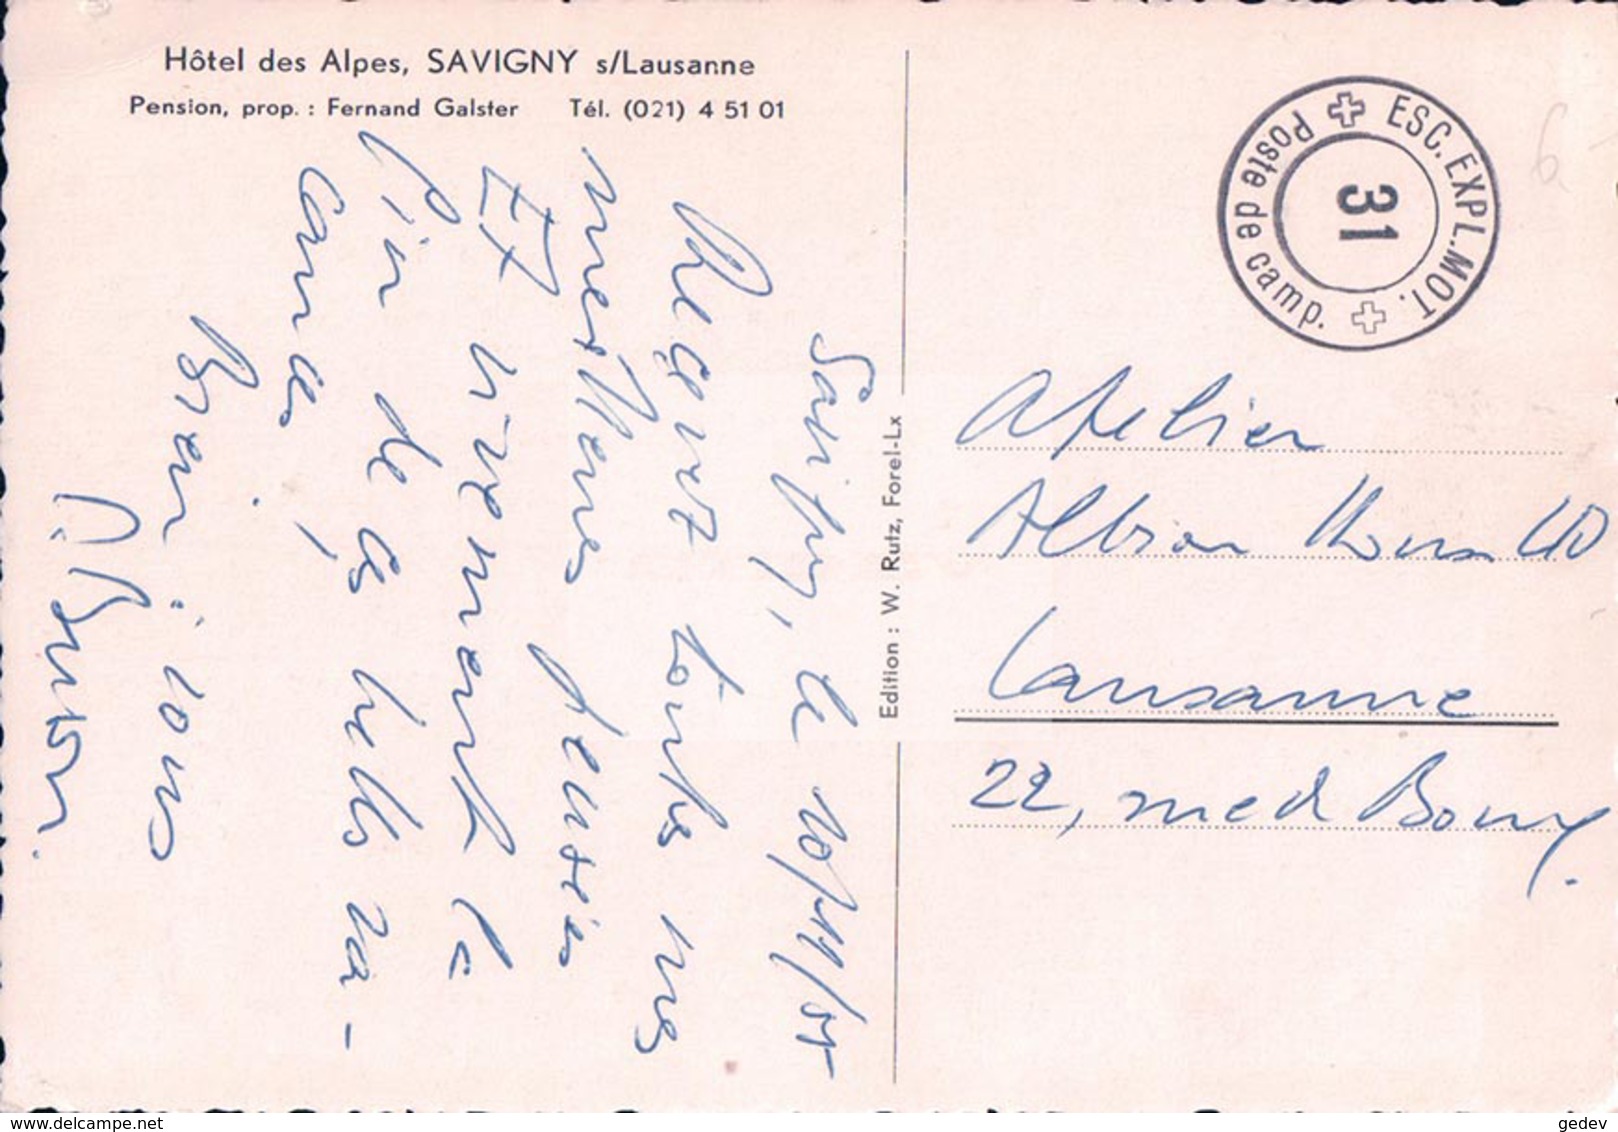 Hôtel des Alpes, SAVIGNY s/Lausanne
Pension, prop. : Fernand Galster Tél. (021) 4 51 01
Savigny, le 10/11/55
Recevez toutes mes
meilleures pensées
Et vivement la
fin de ces belles va-
cances,
Bien à vous
Edition : W. Rutz, Forel-Lx
ESC. EXPL. MOT.
Poste de camp.
31
6
Atelier
Albion
Lausanne
22,
gedev
delcampe.net